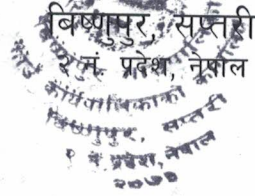 बिष्णुपुर, सप्तरी
२ नं. प्रदेश, नेपाल
कार्यपालिकाको
बिष्णुपुर, सप्तरी
२ नं. प्रदेश, नेपाल
२०७७